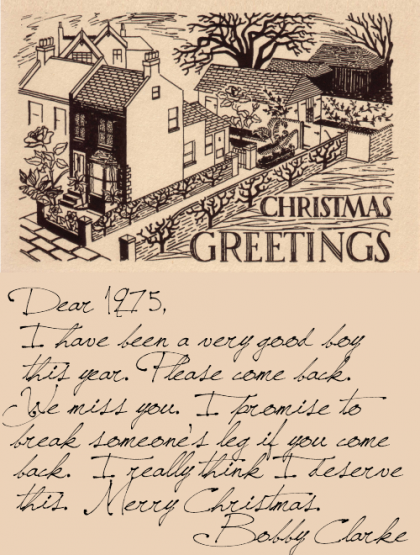 CHRISTMAS
GREETINGS
Dear 1975,
I have been a very good boy
this year. Please come back.
We miss you. I promise to
break someone's leg if you come
back. I really think I deserve
this. Merry Christmas.
Bobby Clarke